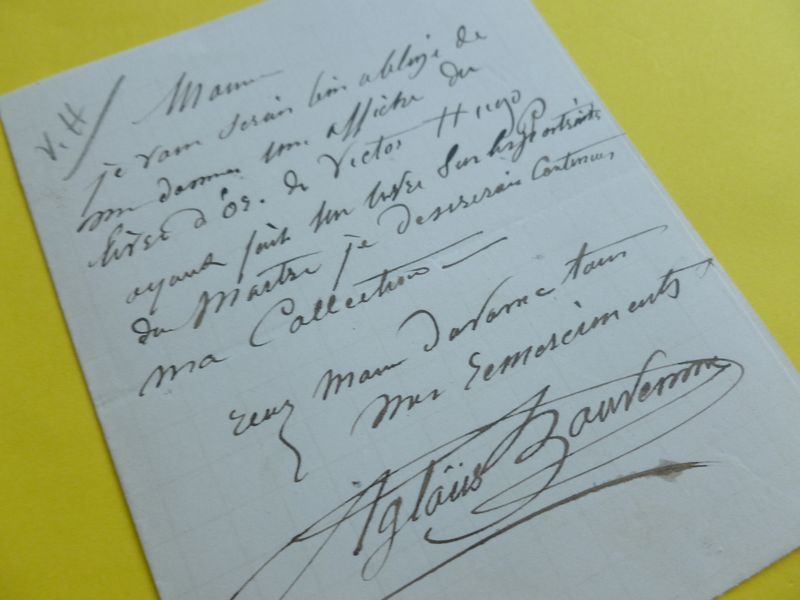 V. H
Mon
je vous serais bien obligé de
me donner une affiche du
livre d'Or. de Victor Hugo
ayant fait un livre sur les Portraits
du Maitre je desirerais Continuer
ma Collection
recez Mon d'avance tous
mes remerciments
Aglaüs Bouvenne